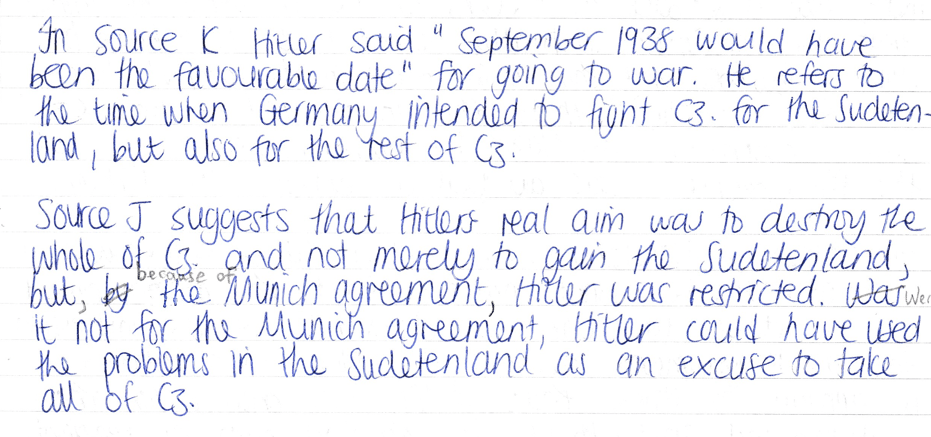 In Source K Hitler said "September 1938 would have
been the favourable date" for going to war. He refers to
the time when Germany intended to fight C3. for the Sudeten-
land, but also for the rest of C3.
Source J suggests that Hitlers real aim was to destroy the
whole of C3. and not merely to gain the Sudetenland,
because of
but, by the Munich agreement, Hitler was restricted. Was Wer
it not for the Munich agreement, Hitler could have used
the problems in the Sudetenland as an excuse to take
all of C3.